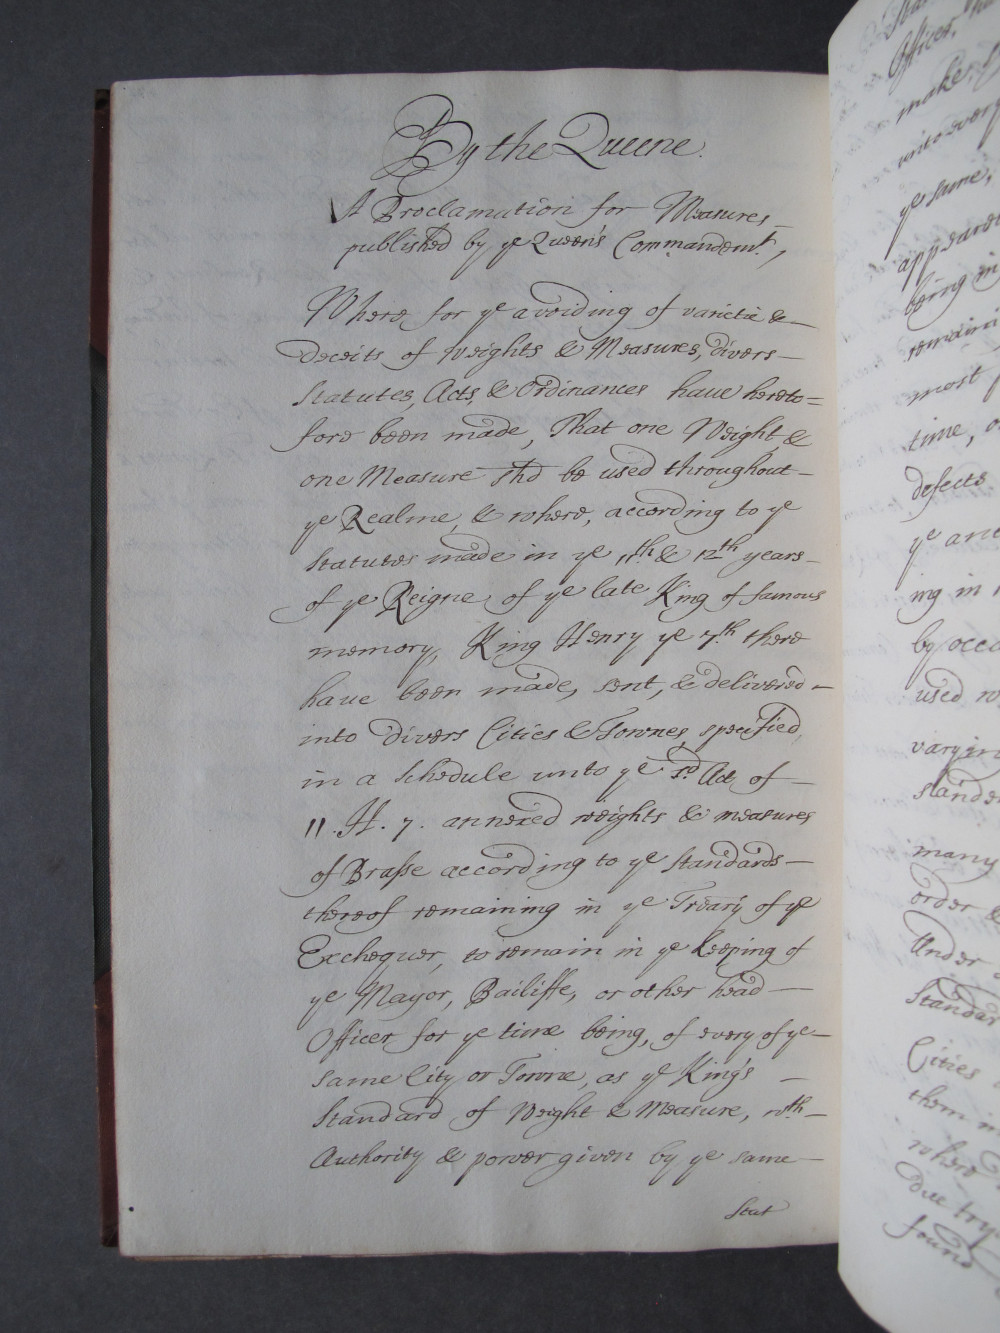 By the Queene.
A Proclamation for Measures
published by ye Queen's Commandemt,
Where for ye avoiding of varietie &
deceits of Weights & Measures, divers
Statutes, Acts, & Ordinances have hereto=
fore been made, That one Weight &
one Measure shd be used throughout
ye Realme, & where, according to ye
Statutes made in ye 11th & 12th years
of ye Reigne of ye late King of famous
memory, King Henry ye 7th there
have been made, sent, & delivered
into divers Cities & Townes specified
in a Schedule unto ye sd Act of
11. H. 7. annexed weights & measures
of Brasse according to ye Standards
thereof remaining in ye Treãry of ye
Exchequer, to remain in ye Keeping of
ye Mayor, Bailiffe, or other head
Officer for ye time being, of every of ye
same City or Towne, as ye King's
Standard of Weight & Measure, wth
Authority & power given by ye same
Stat
Officer,
make
unto every
ye same,
appeared
being in
remaini
most
time, o
defects
ye anc
ing in
by occa
used w
varyin
Stande
many
order &
Under
Standar
Cities
them
where
due trya
found